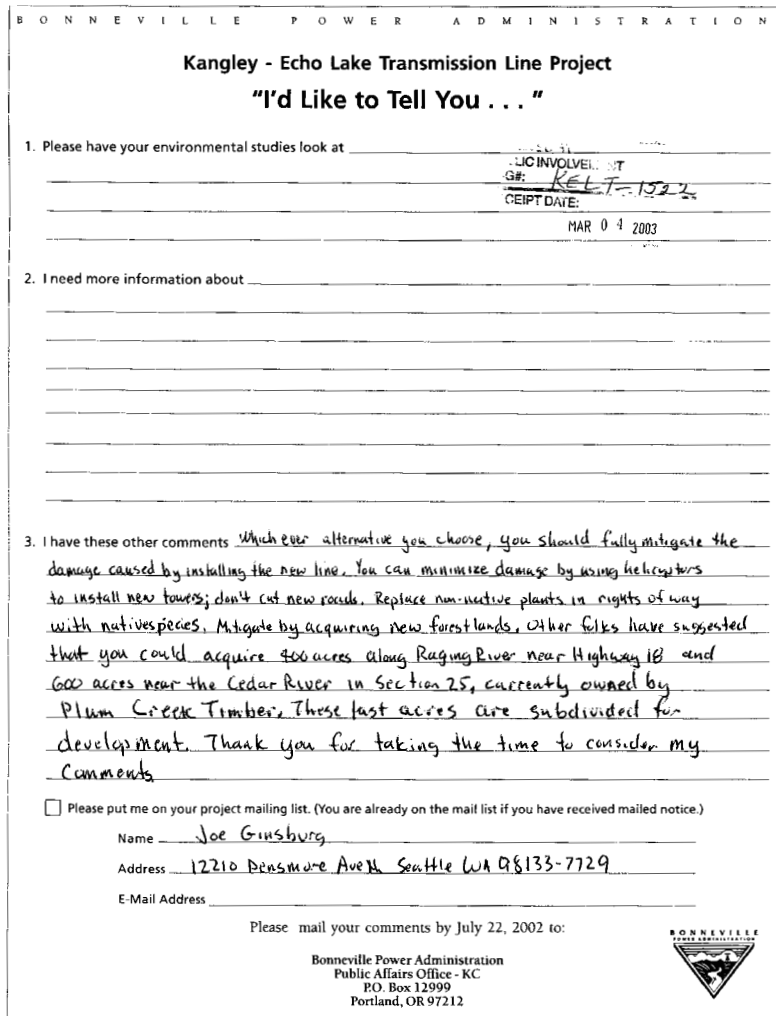 BONNEVILLE POWER ADMINISTRATION
Kangley - Echo Lake Transmission Line Project
"I'd Like to Tell You . . . "
1. Please have your environmental studies look at
LIC INVOLVE T
G#: KELT-1522
CEIPT DATE:
MAR 04 2003
2. I need more information about
3. I have these other comments Which ever alternative you choose, you should fully mitigate the
damage caused by installing the new line. You can minimize damage by using helicopters
to install new towers; don't cut new roads. Replace non-native plants in rights of way
with native species. Mitigate by acquiring new forest lands. Other folks have suggested
that you could acquire 400 acres along Raging River near Highway 18 and
600 acres near the Cedar River in Section 25, currently owned by
Plum Creek Timber. These last acres are subdivided for
development. Thank you for taking the time to consider my
Comments
Please put me on your project mailing list. (You are already on the mail list if you have received mailed notice.)
Name Joe Ginsburg
Address 12210 Densmore Ave N Seattle WA 98133-7729
E-Mail Address
Please mail your comments by July 22, 2002 to:
Bonneville Power Administration
Public Affairs Office - KC
P.O. Box 12999
Portland, OR 97212
BONNEVILLE
POWER ADMINISTRATION